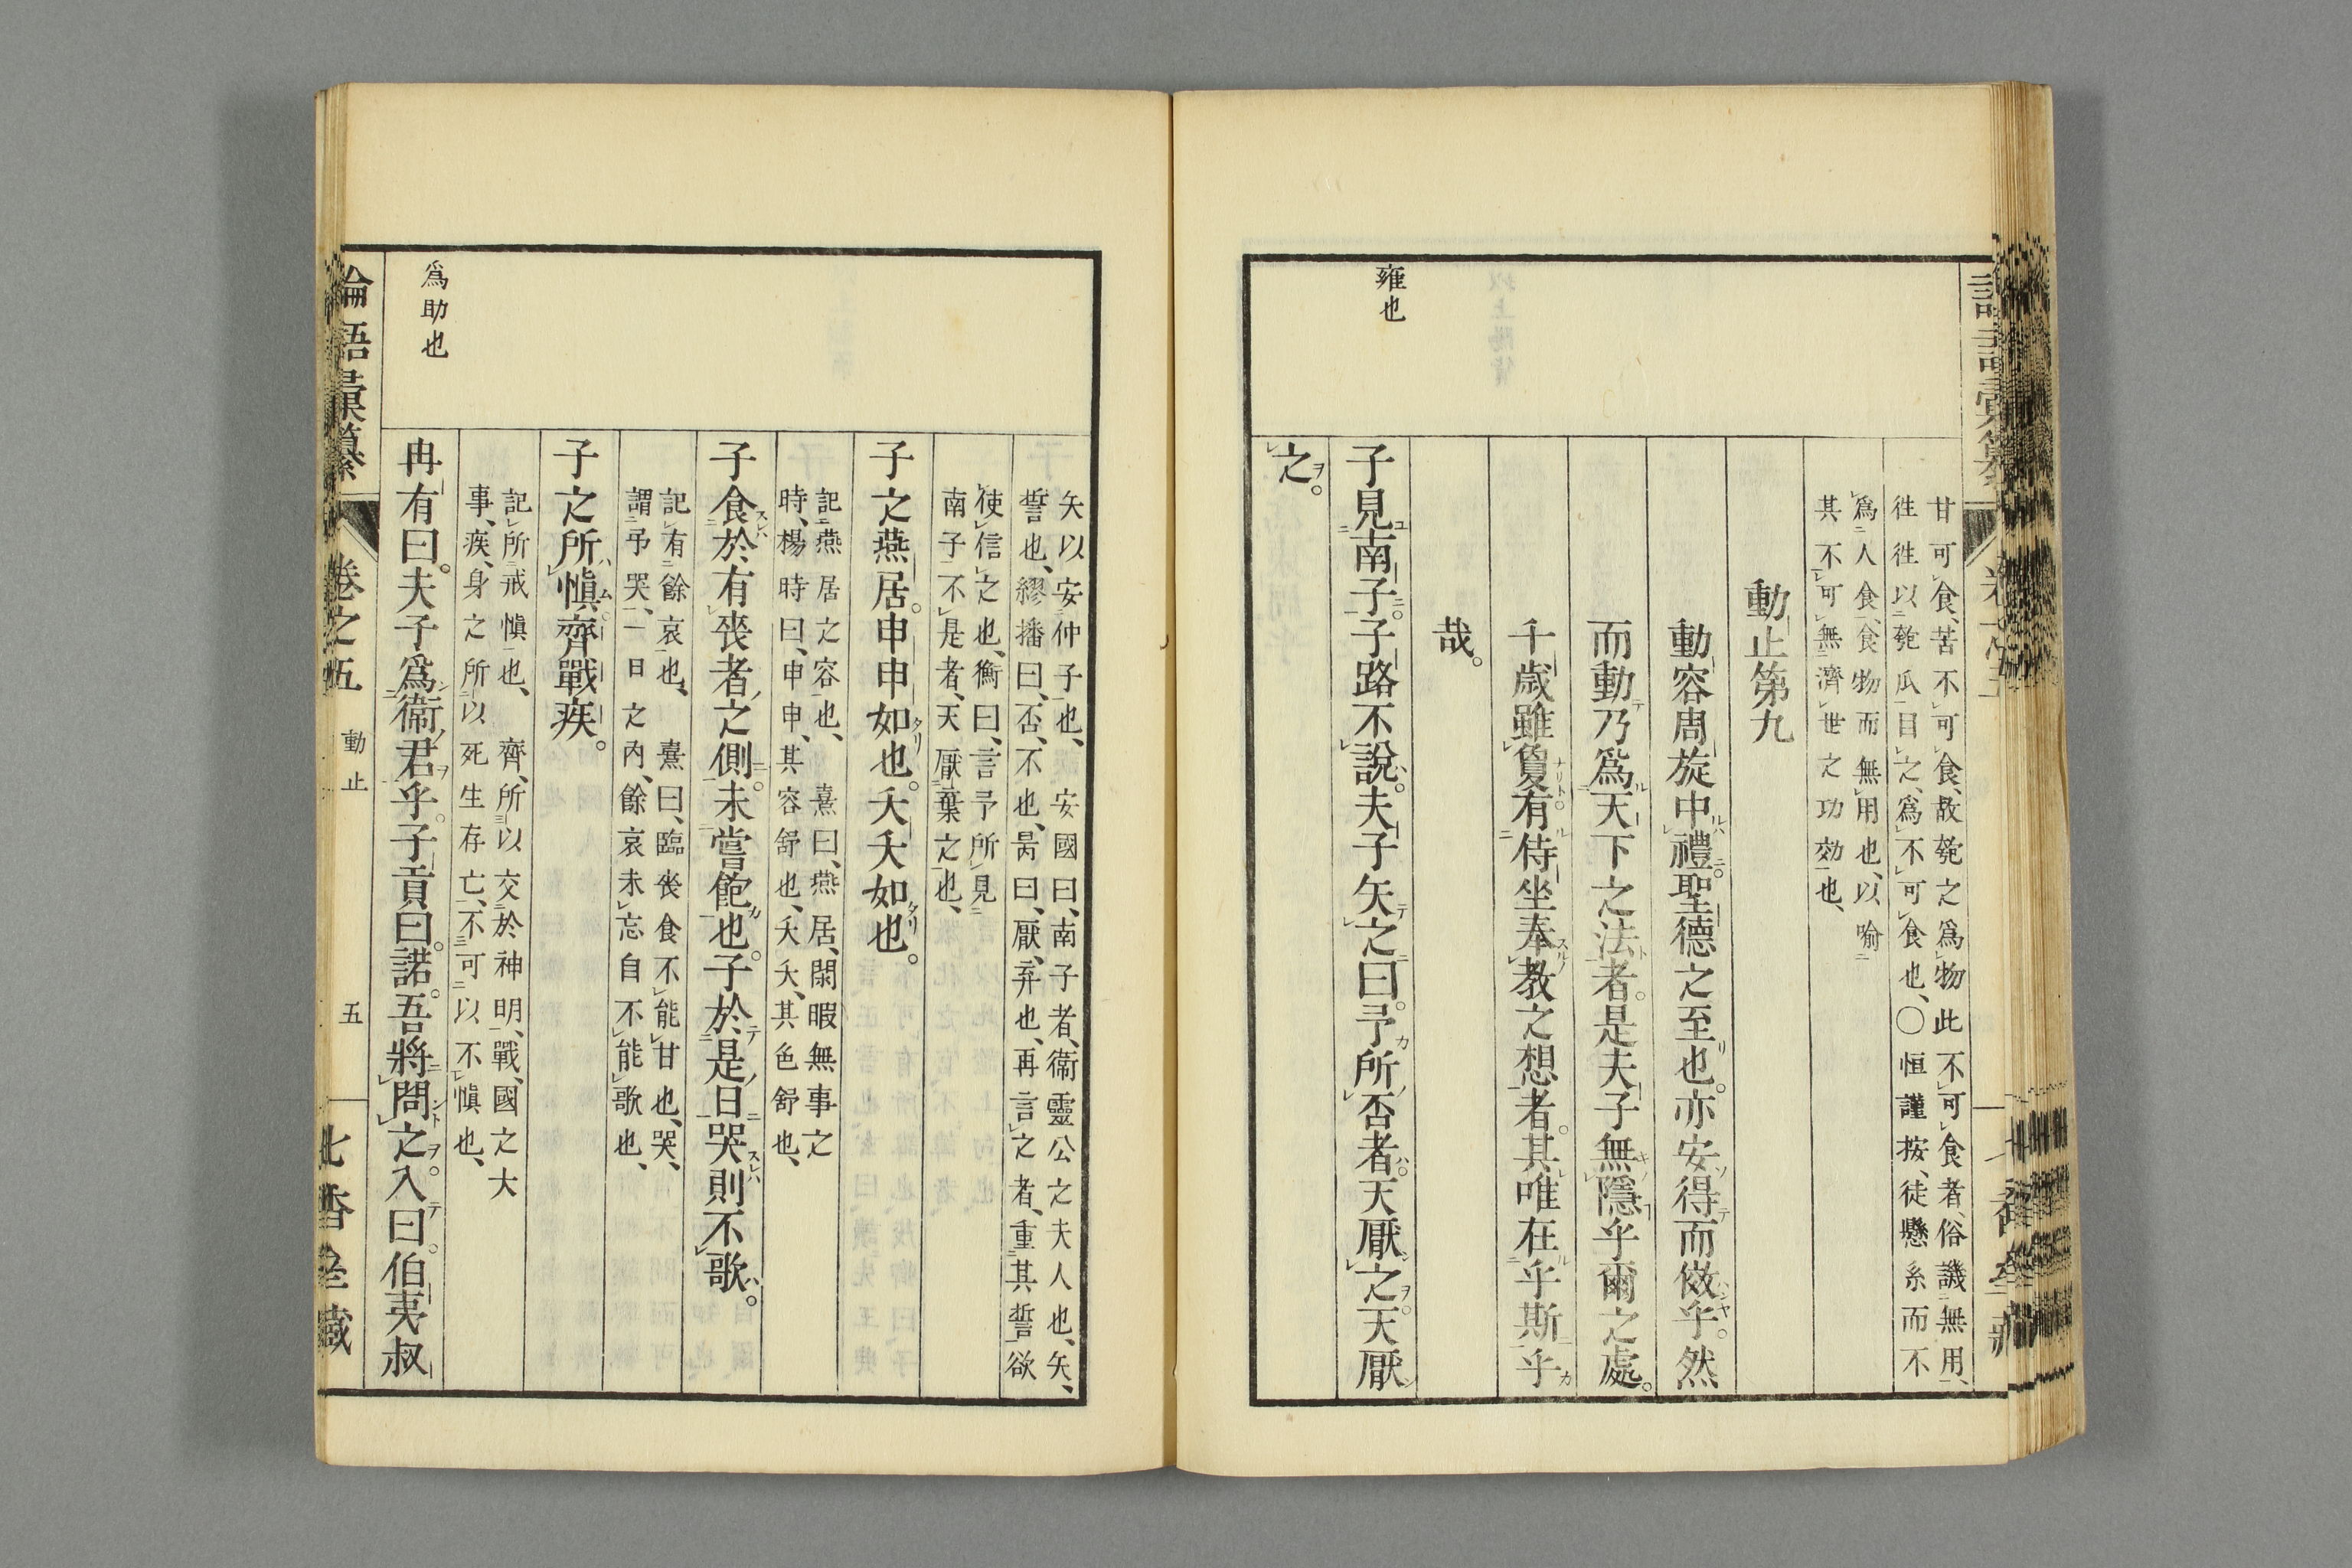 甘可食、苦不可食、故匏之爲物此不可食者、俗譏無用、
徃徃以匏瓜目之、爲不可食也、〇恒謹按、徒懸系而不
爲人食、食物而無用也、以喻
其不可無濟世之功効也、
動止第九
動容周旋中禮。聖德之至也。亦安得而傚乎。然
而動乃爲天下之法者。是夫子無隱乎爾之處。
千歲雖夐。有侍坐奉教之想者。其唯在乎斯乎
哉。
雍也
子見南子。子路不說。夫子矢之曰。予所否者。天厭之。天厭
之。
矢以安仲子也、安國曰、南子者、衞靈公之夫人也、矢、
誓也、繆播曰、否、不也、昺曰、厭、弃也、再言之者、重其誓、欲
使信之也、衡曰、言予所見
南子不是者、天厭棄之也、
子之燕居。申申如也。夭夭如也。
記燕居之容也、熹曰、燕居、閑暇無事之
時、楊時曰、申申、其容舒也、夭夭、其色舒也、
子食於有喪者之側。未嘗飽也。子於是日哭則不歌。
記有餘哀也、熹曰、臨喪食不能甘也、哭、
謂弔哭、一日之內、餘哀未忘、自不能歌也、
子之所愼。齊戰疾。
記所戒愼也、齊、所以交於神明、戰、國之大
事、疾、身之所以死生存亡、不可以不愼也、
爲助也
冉有曰。夫子爲衞君乎。子貢曰。諾。吾將問之。入曰。伯夷叔
論語彙纂
卷之五
動止
五